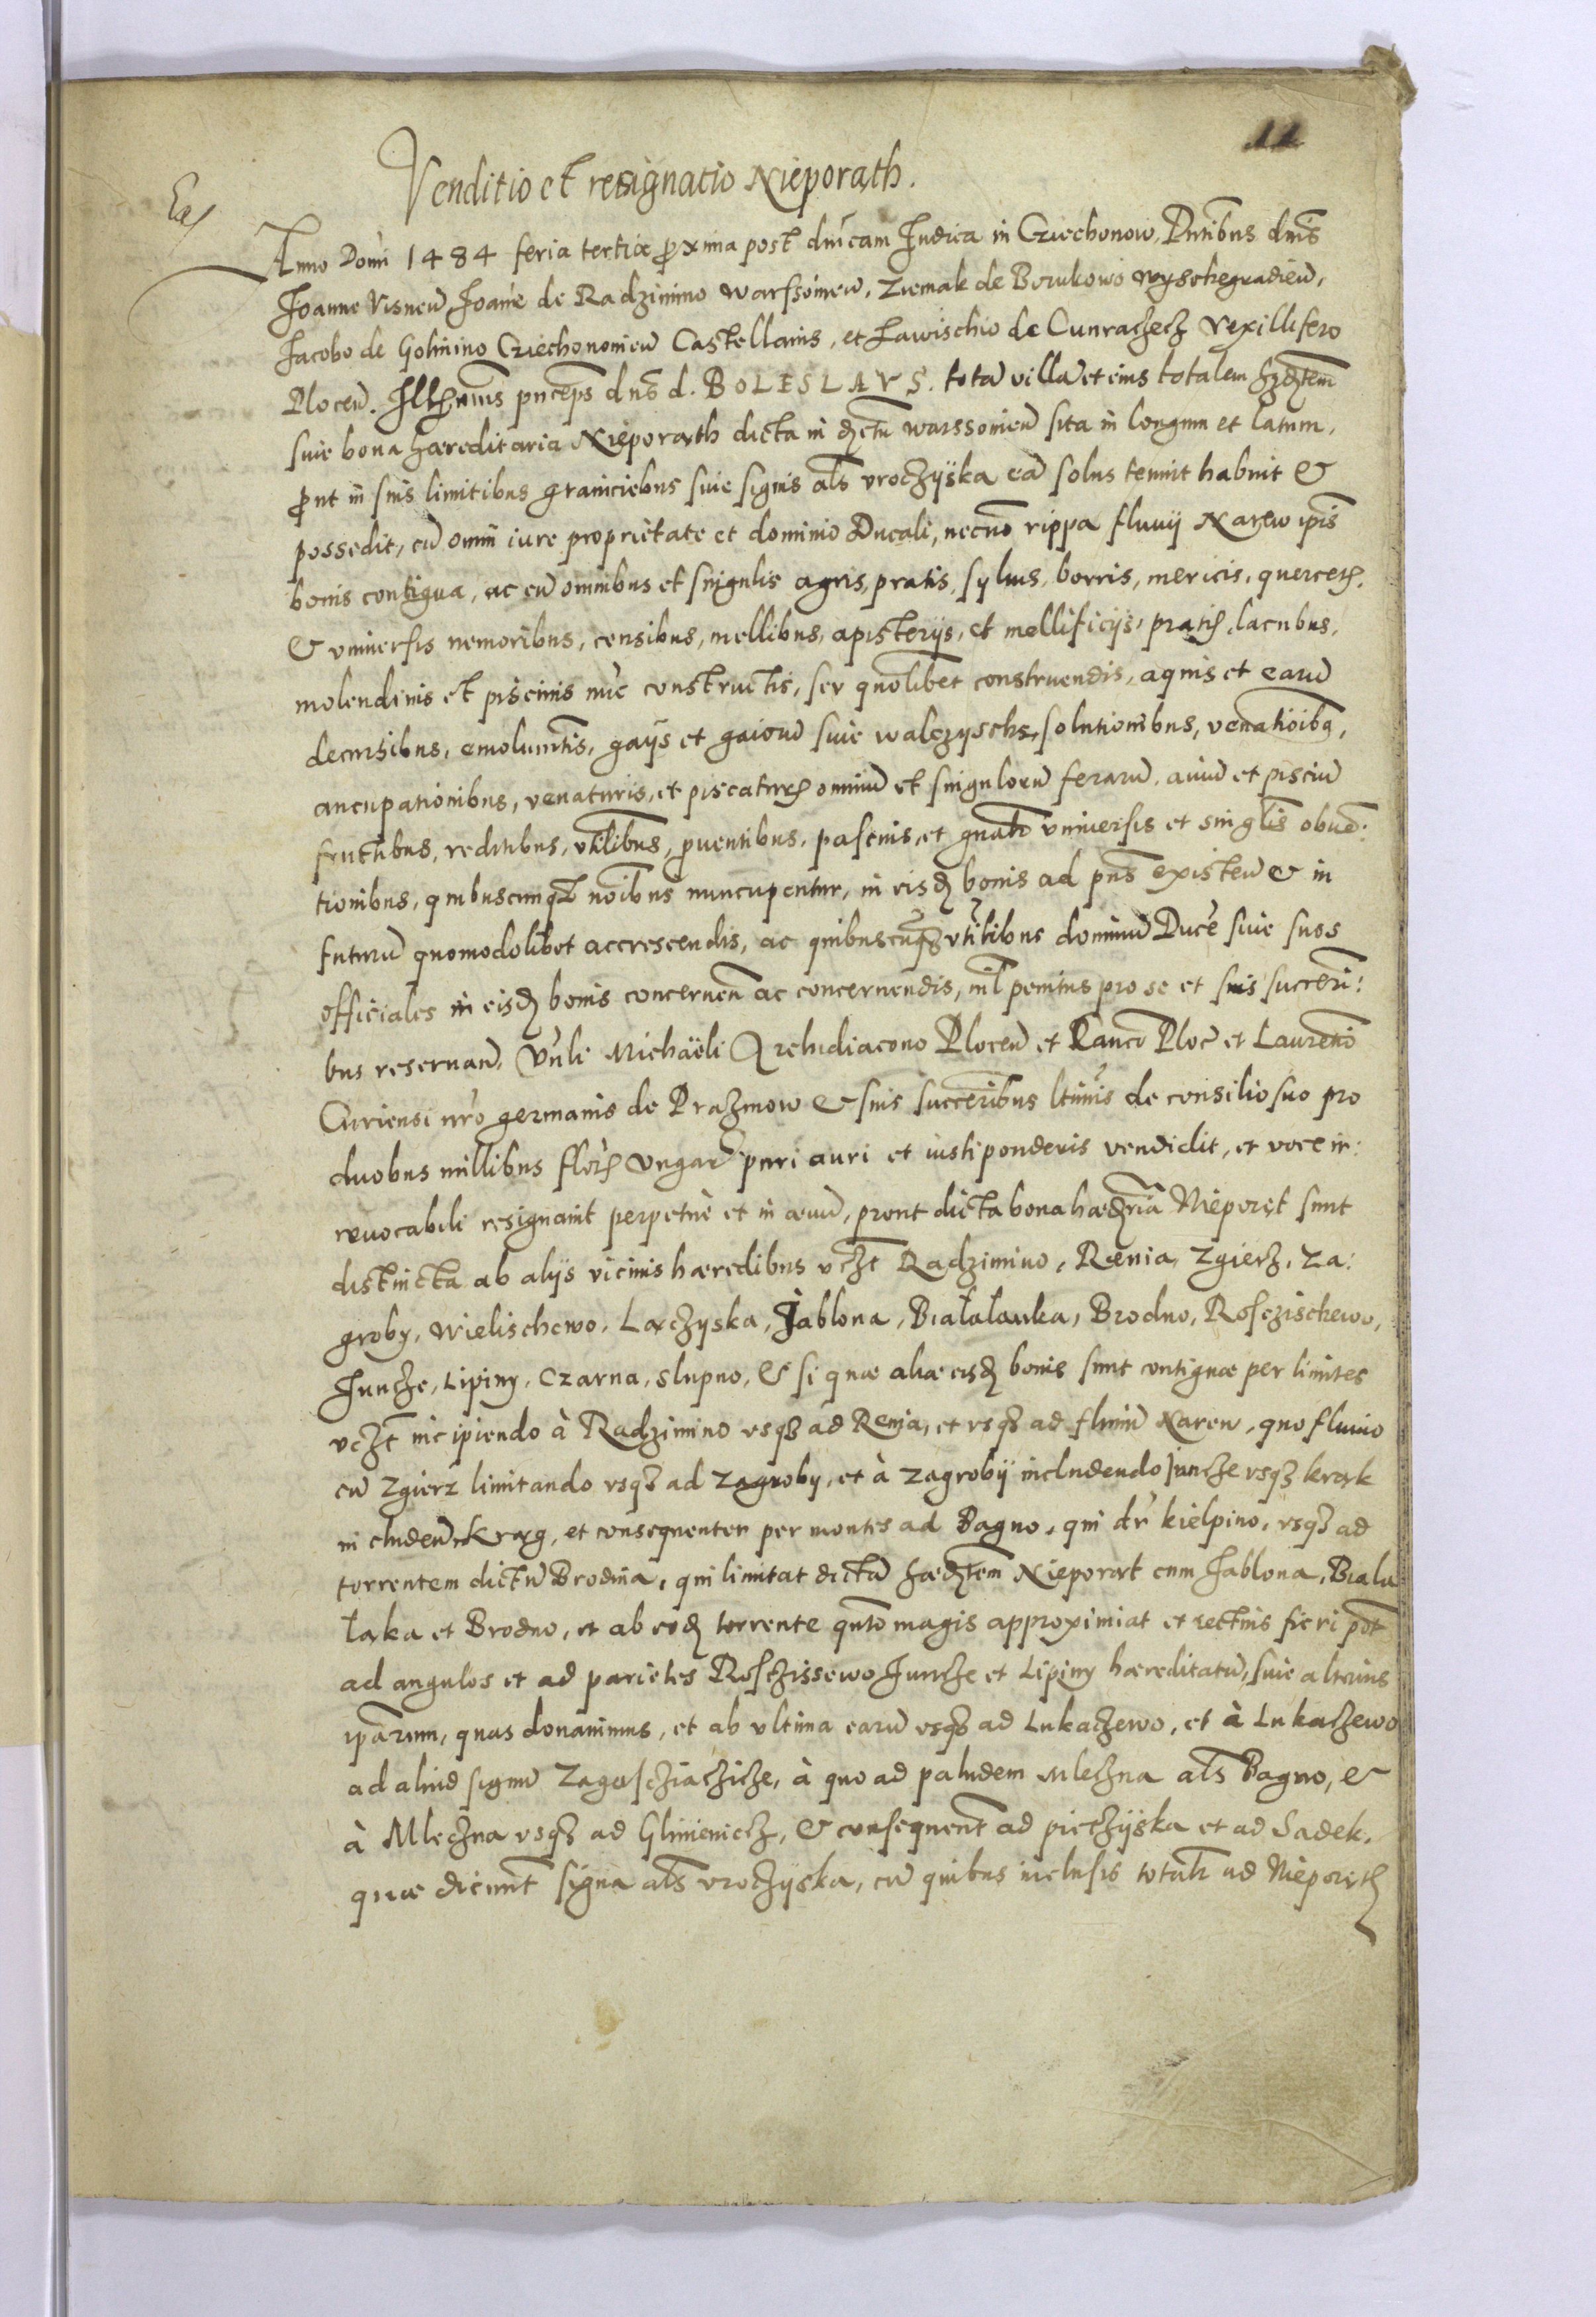 11
Venditio et resignatio Nieporąth.
Anno Domi 1484 feria tertia pxima post dnicam Iudica in Cziechonow, Pntibus dnis
Joanne Visnen Joane de Radzimino Warssouien, Ziemak de Borukowo Wyschegradien,
Jacobo de Golmino Cziechonouien Castellanis, et Lawischio de Cunraczecz Vexillifero
Plocen. princeps dns d. BOLESLAVS. tota villa et eius totalem
siue bona hæreditaria Nieporąth dicta in warssouien sita in longum et latum,
put in suis limitibus graniciebus siue signis als vroczyska ea solus tenuit habuit &
possedit, cu omni iure proprietate et dominio Ducali, necno rippa fluuij Narew ipis
bonis contigua, ac cu omnibus et singulis agris, pratis, syluis, borris, mericis, quercetis,
& vniuersis nemoribus, censibus, mellibus, apisterijs, et mellificijs, pratis, lacubus,
molendinis et piscinis nuc constructis, seu quolibet construendis, aquis et earu
decursibus, emolumtis, gajis et gaioru siue walczyschs, solutionibus, venatioibq,
aucupationibus, venaturis, et piscaturis omniu et singuloru ferarum, auiu et pisciu
fructibus, reditibus, vtilibus, puentibus, pascuis, et gnalr vniuersis et singlis obue:
tionibus, quibuscunqz noibus nuncupentur, in eisd bonis ad pns existen & in
futuru quomodolibet accrescendis, ac quibuscuqz vtilibus dominu Duce siue suos
officiales in eisd bonis concernen ac concernendis, nil penitus pro se et suis succeri:
bus reseruan, Vnli Michaëli Archidiacono Plocen et Canco Ploc et Laurentio
Curiensi nro germanis de Prazmow & suis succeribus ltimis de consilio suo pro
duobus millibus flor Vngar puri auri et iusti ponderis vendidit, et voce ir:
reuocabili resignauit perpetuè et in æuu, prout dicta bona Nieporąt sunt
distincta ab alijs vicinis hæredibus vczt Radzimino, Rænia, Zgierz, Za:
groby, Wielischewo, Laxczyska, Jablona, Białałanka, Brodno, Rosczischewo,
Juncze, Lipiny, Czarna, Slupno, & si quæ aliæ eisd bonis sunt contiguæ per limites
vczt incipiendo à Radzimino vsqz ad Renia, et vsqz ad fluuiu Narew, quo fluuio
cu Zgierz limitando vsqz ad Zagroby, et à Zagroby includendo Juncze vsqz krąk
includen Krąg, et consequenter per montes ad Bagno, qui dr kielpino, vsqz ad
torrentem dictu Brodnia, qui limitat dicta Nieporąt cum Jablona, Biala
łąka et Brodno, et ab eod torrente qnto magis approximiat et rectius fieri pot
ad angulos et ad parietes Rosczissewo Juncze et Lipiny hæreditatu, siue alterius
ipārum, quas donauimus, et ab vltima earu vsqz ad Lukaczewo, et à Lukaczewo
ad aliud signu à quo ad paludem Mleczna als Bagno, &
à Mleczna vsqz ad Glinieniecz, & consequent ad pieczyska et ad Sadek,
quæ dicunt signa als vroczyska, cu quibus inclusis totalr ad Nieporąth